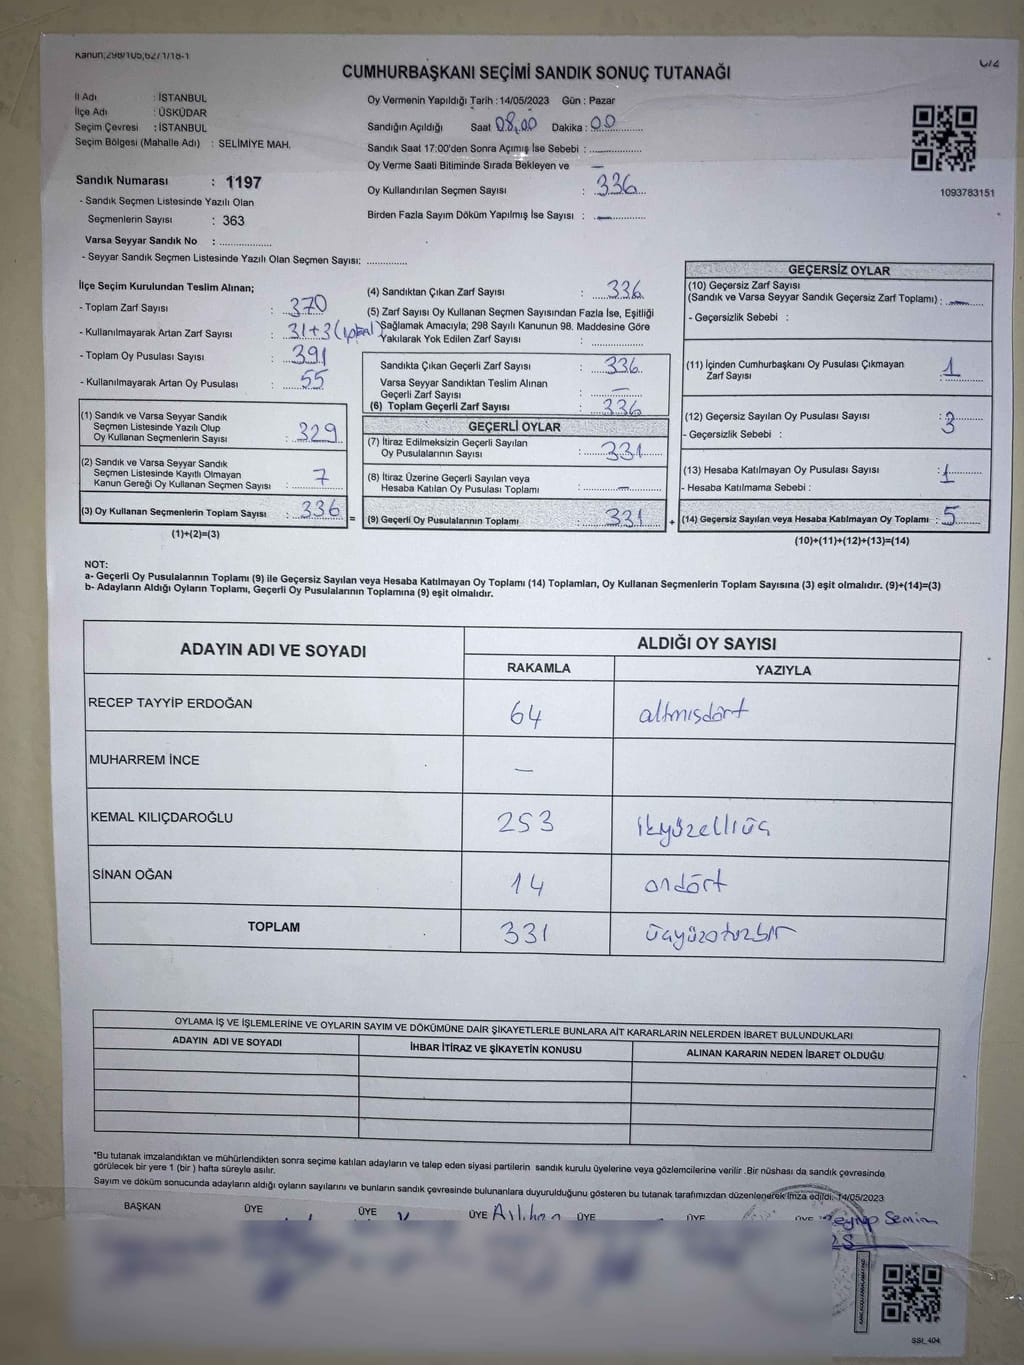 Kanun;298/105,62/1/18-1
CUMHURBAŞKANI SEÇİMİ SANDIK SONUÇ TUTANAĞI
İl Adı : İSTANBUL
İlçe Adı : ÜSKÜDAR
Seçim Çevresi : İSTANBUL
Seçim Bölgesi (Mahalle Adı) : SELİMİYE MAH.
Sandık Numarası : 1197
- Sandık Seçmen Listesinde Yazılı Olan
Seçmenlerin Sayısı : 363
Varsa Seyyar Sandık No : ..................
- Seyyar Sandık Seçmen Listesinde Yazılı Olan Seçmen Sayısı: .............
Oy Vermenin Yapıldığı Tarih : 14/05/2023 Gün : Pazar
Sandığın Açıldığı Saat 08.00 Dakika : 00
Sandık Saat 17:00'den Sonra Açımış İse Sebebi : ..............
Oy Verme Saati Bitiminde Sırada Bekleyen ve
Oy Kullandırılan Seçmen Sayısı : 336
Birden Fazla Sayım Döküm Yapılmış İse Sayısı : —
1093783151
İlçe Seçim Kurulundan Teslim Alınan;
- Toplam Zarf Sayısı : 370
- Kullanılmayarak Artan Zarf Sayısı : 31+3(iptal)
- Toplam Oy Pusulası Sayısı : 391
- Kullanılmayarak Artan Oy Pusulası : 55
(1) Sandık ve Varsa Seyyar Sandık
Seçmen Listesinde Yazılı Olup
Oy Kullanan Seçmenlerin Sayısı : 329
(2) Sandık ve Varsa Seyyar Sandık
Seçmen Listesinde Kayıtlı Olmayan
Kanun Gereği Oy Kullanan Seçmen Sayısı : 7
(3) Oy Kullanan Seçmenlerin Toplam Sayısı : 336 =
(1)+(2)=(3)
(4) Sandıktan Çıkan Zarf Sayısı : 336
(5) Zarf Sayısı Oy Kullanan Seçmen Sayısından Fazla İse, Eşitliği
Sağlamak Amacıyla; 298 Sayılı Kanunun 98. Maddesine Göre
Yakılarak Yok Edilen Zarf Sayısı : ..............
Sandıkta Çıkan Geçerli Zarf Sayısı : 336
Varsa Seyyar Sandıktan Teslim Alınan
Geçerli Zarf Sayısı : —
(6) Toplam Geçerli Zarf Sayısı : 336
GEÇERLİ OYLAR
(7) İtiraz Edilmeksizin Geçerli Sayılan
Oy Pusulalarının Sayısı : 331
(8) İtiraz Üzerine Geçerli Sayılan veya
Hesaba Katılan Oy Pusulası Toplamı : —
(9) Geçerli Oy Pusulalarının Toplamı : 331 +
GEÇERSİZ OYLAR
(10) Geçersiz Zarf Sayısı
(Sandık ve Varsa Seyyar Sandık Geçersiz Zarf Toplamı) : —
- Geçersizlik Sebebi :
(11) İçinden Cumhurbaşkanı Oy Pusulası Çıkmayan
Zarf Sayısı : 1
(12) Geçersiz Sayılan Oy Pusulası Sayısı : 3
- Geçersizlik Sebebi :
(13) Hesaba Katılmayan Oy Pusulası Sayısı : 1
- Hesaba Katılmama Sebebi :
(14) Geçersiz Sayılan veya Hesaba Katılmayan Oy Toplamı : 5
(10)+(11)+(12)+(13)=(14)
NOT:
a- Geçerli Oy Pusulalarının Toplamı (9) ile Geçersiz Sayılan veya Hesaba Katılmayan Oy Toplamı (14) Toplamları, Oy Kullanan Seçmenlerin Toplam Sayısına (3) eşit olmalıdır. (9)+(14)=(3)
b- Adayların Aldığı Oyların Toplamı, Geçerli Oy Pusulalarının Toplamına (9) eşit olmalıdır.
ADAYIN ADI VE SOYADI ALDIĞI OY SAYISI
RAKAMLA YAZIYLA
RECEP TAYYİP ERDOĞAN 64 altmışdört
MUHARREM İNCE —
KEMAL KILIÇDAROĞLU 253 ikiyüzelliüç
SİNAN OĞAN 14 ondört
TOPLAM 331 üçyüzotuzbir
OYLAMA İŞ VE İŞLEMLERİNE VE OYLARIN SAYIM VE DÖKÜMÜNE DAİR ŞİKAYETLERLE BUNLARA AİT KARARLARIN NELERDEN İBARET BULUNDUKLARI
ADAYIN ADI VE SOYADI İHBAR İTİRAZ VE ŞİKAYETİN KONUSU ALINAN KARARIN NEDEN İBARET OLDUĞU
"Bu tutanak imzalandıktan ve mühürlendikten sonra seçime katılan adayların ve talep eden siyasi partilerin sandık kurulu üyelerine veya gözlemcilerine verilir .Bir nüshası da sandık çevresinde
görülecek bir yere 1 (bir ) hafta süreyle asılır.
Sayım ve döküm sonucunda adayların aldığı oyların sayılarını ve bunların sandık çevresinde bulunanlara duyurulduğunu gösteren bu tutanak tarafımızdan düzenlenerek imza edildi. 14/05/2023
BAŞKAN ÜYE ÜYE ÜYE ÜYE ÜYE ÜYE
SSİ_404